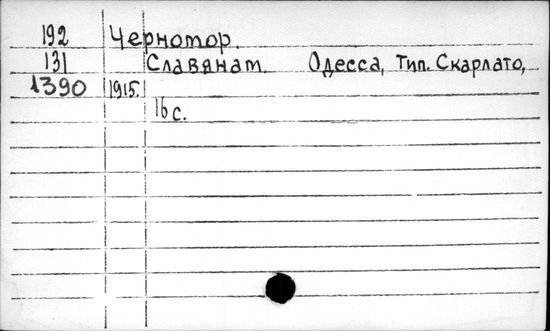 192 Черномор.
131 Славянам. Одесса, Тип. Скарлато,
1390 1915.
16 с.